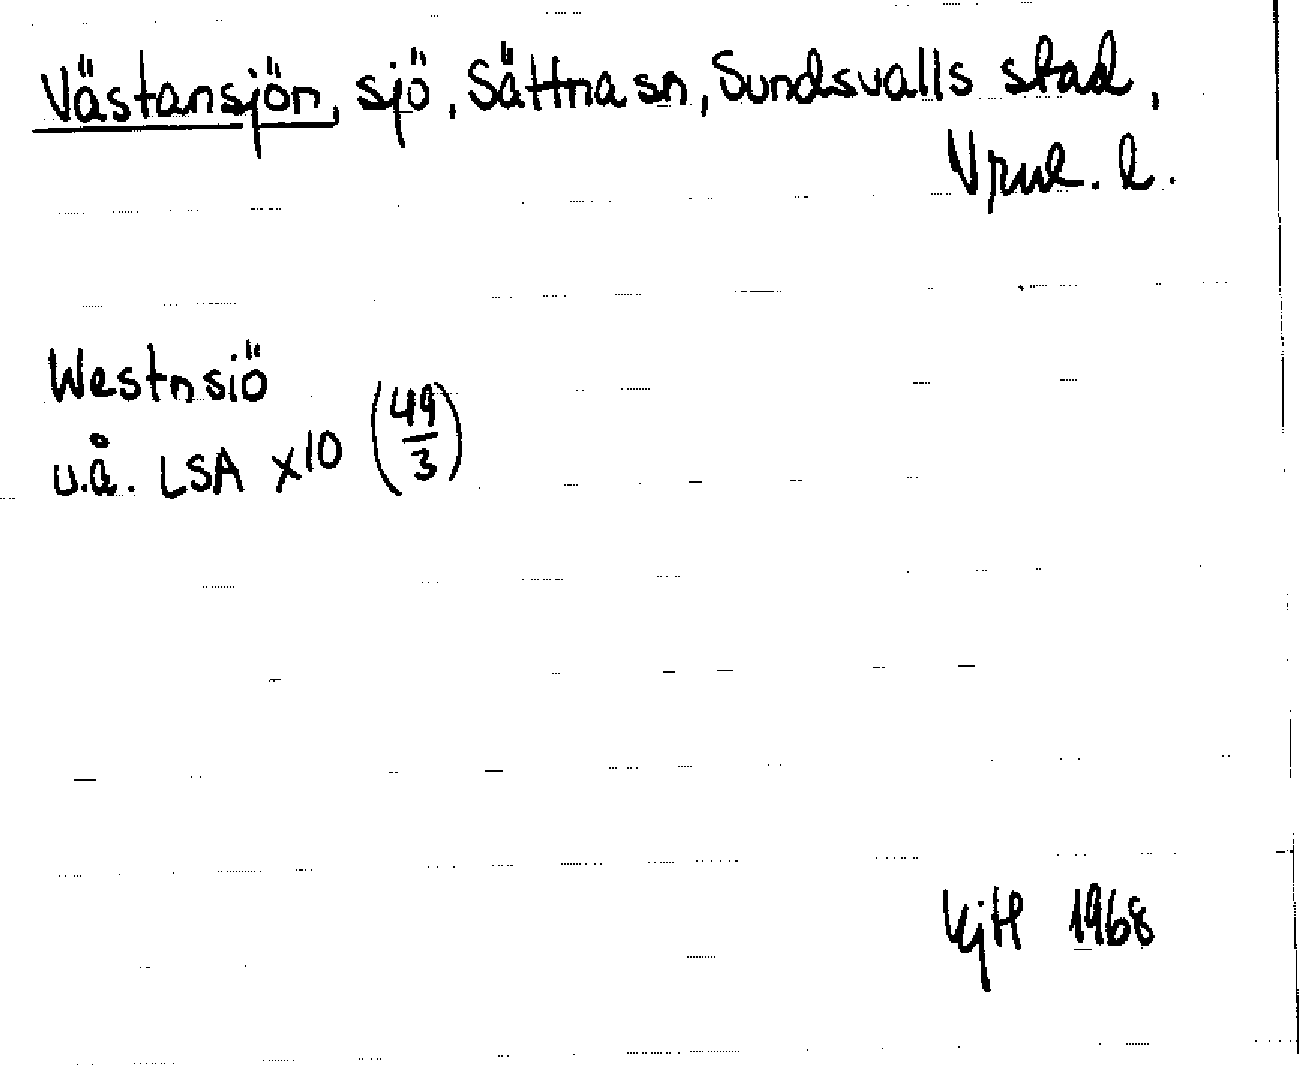 Västansjön, sjö, Sättna sn, Sundsvalls stad,
Vrml. l.
Westnsiö
u.å. LSA X10 (49/3)
KjH 1968